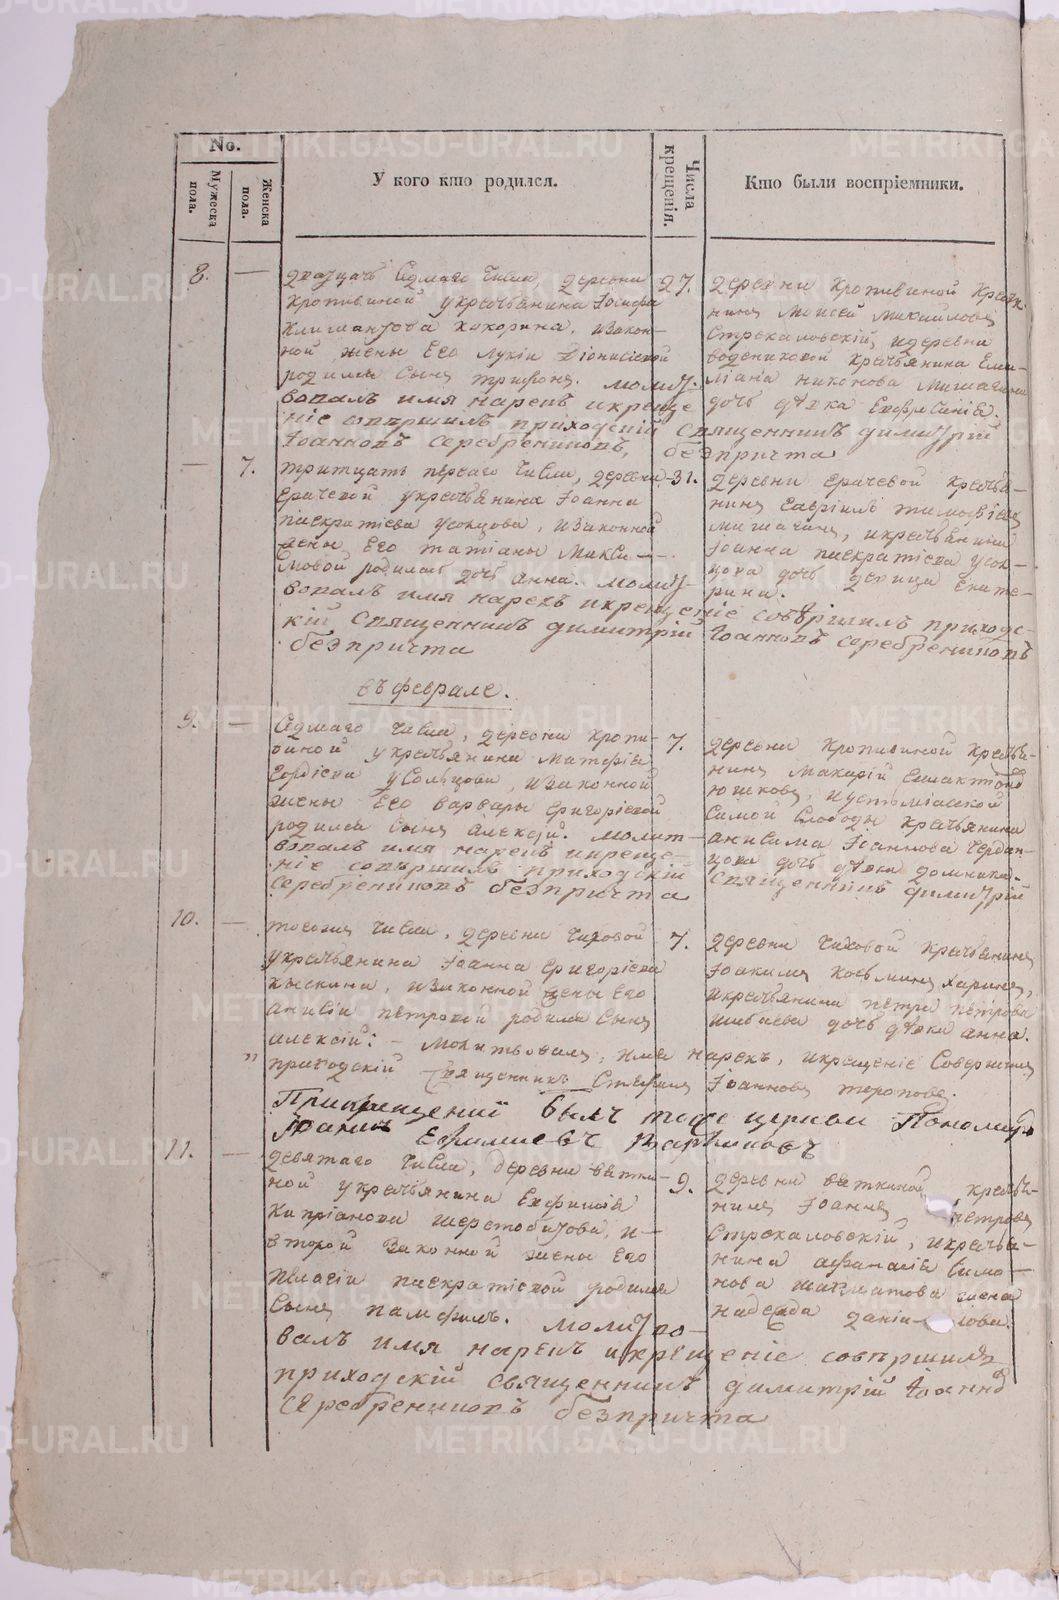 No.
Мужеска пола.
Женска пола.
У кого кто родился.
Числа крещенія.
Кто были воспріемники.
8. —
дватцать седмаго числа, деревни
Кропивиной у крестьянина Іосифа
Хохорина, и закон-
ной жены Его Лукіи Діонисіевой
родился сынъ Трифонъ. молит-
вовалъ имя нарекъ и креще
ніе соверщилъ приходскій священникъ димитрій
Іоанновъ Серебрениковъ, безпричта
27.
деревни Кропивиной Крестья-
нинъ Моисей Михайловъ
Стрекаловскій, и деревни
крестьянина Еми-
ліана никонова Мишагина
дочь дѣвка Евфросинія.
— 7.
тритцать перваго числа, деревни
Ерачевой у крестьянина Іоанна
панкратіева Усолцова, и законной
жены Его татіаны Макси-
мовой родилась дочь анна. молит-
вовалъ имя нарекъ и крещеніе совершилъ приходс-
кій священникъ димитрій Іоанновъ Серебрениковъ
безпричта
31.
деревни Ерачевой крестья-
нинъ Гавріилъ тимофіевъ
Мишагинъ, и крестьянина
Іоанна панкратіева Усол-
цова дочь девица Екате-
рина.
въ феврале.
9. —
Седмаго числа, деревни Кропи-
виной у крестьянина Матфія
Гордіева Усольцова, и законной
жены Его варвары григоріевой
родился сынъ алексій. молит-
вовалъ имя нарекъ и креще-
ніе совершилъ приходскій священникъ димитрій
Серебрениковъ безпричта
7.
деревни Кропивиной крестья-
нинъ Макарій
Южаковъ, и устьміасской
самой слободы крестьянина
анисима Іоаннова Чердан-
цова дочь дѣвка домника.
10. —
тогожъ числа, деревни Чиховой
у крестьянина Іоанна григоріева
кыскина, и законной жены Его
анисіи петровой родился сынъ
алексій: — Молитвовалъ, имя нарекъ, и крещеніе Совершилъ
приходскій Священникъ Стефанъ Іоанновъ тороповъ.
При крещеніи былъ тоя же церкви Пономарь
Іоаннъ Ефимиевъ
7.
деревни Чиховой крестьянинъ
Іоакимъ Косьминъ Харинъ,
и крестьянина петра петрова
Шибаева дочь дѣвка анна.
11. —
девятаго числа, деревни вятки-
ной у крестьянина Евфимія
Кипріанова Шерстобитова, и
второй законной жены Его
пелагіи панкратіевой родился
сынъ памфилъ. молитво-
валъ имя нарекъ и крещеніе совершилъ
приходскій священникъ димитрій Іоанновъ
Серебрениковъ безпричта
9.
деревни вяткиной, крестья-
нинъ Іоаннъ петровъ
Стрекаловскій, и крестья-
нина афанасія симо-
нова жена
надежда даніилова.
METRIKI.GASO-URAL.RU